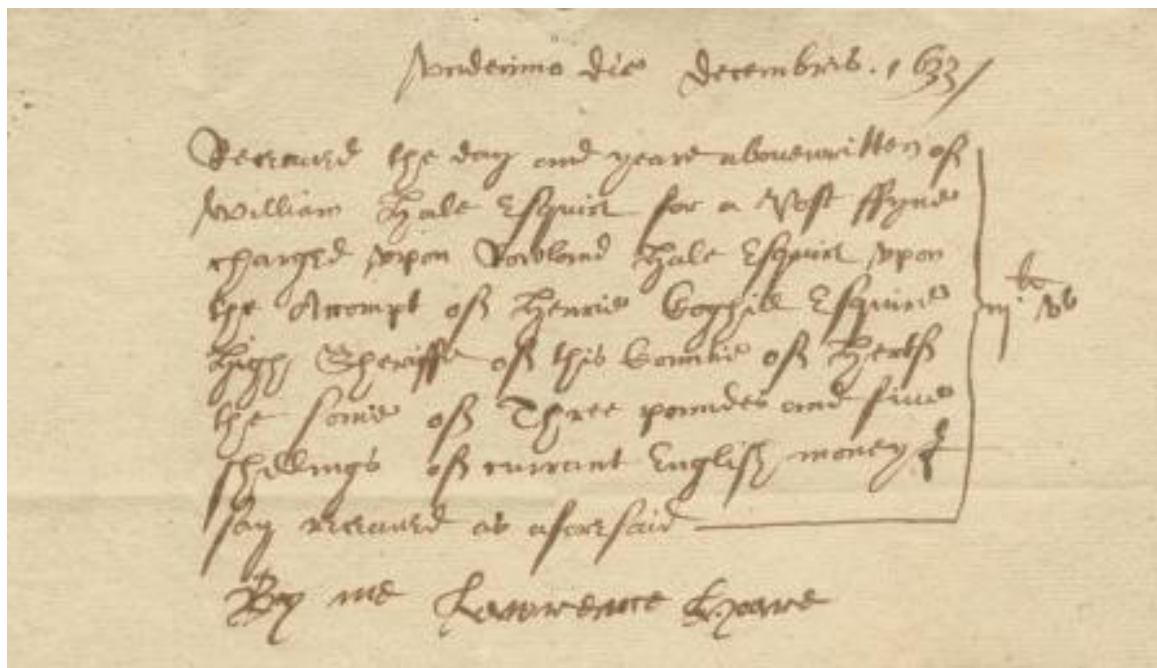 Vndecimo die Decembris. 1633
Receaued the day and yeare abouewritten of
William Hale Esquire for a Post ffyne
charged vpon Rowland Hale Esquire vpon
the Accompt of Henrie Coghill Esquire
High Sheriffe of this Countie of Hertf
the some of Three poundes and fiue
shillings of currant English money I
say receaued as aforesaid
iij li vs
By me Lawrence Hoare